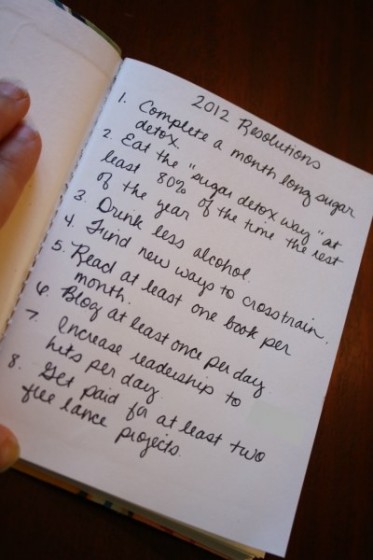 2012 Resolutions
1. Complete a month long sugar
detox.
2. Eat the "sugar detox way" at
least 80% of the time the rest
of the year
3. Drink less alcohol.
4. Find new ways to crosstrain.
5. Read at least one book per
month.
6. Blog at least once per day
7. Increase readership to
hits per day.
8. Get paid for at least two
free lance projects.